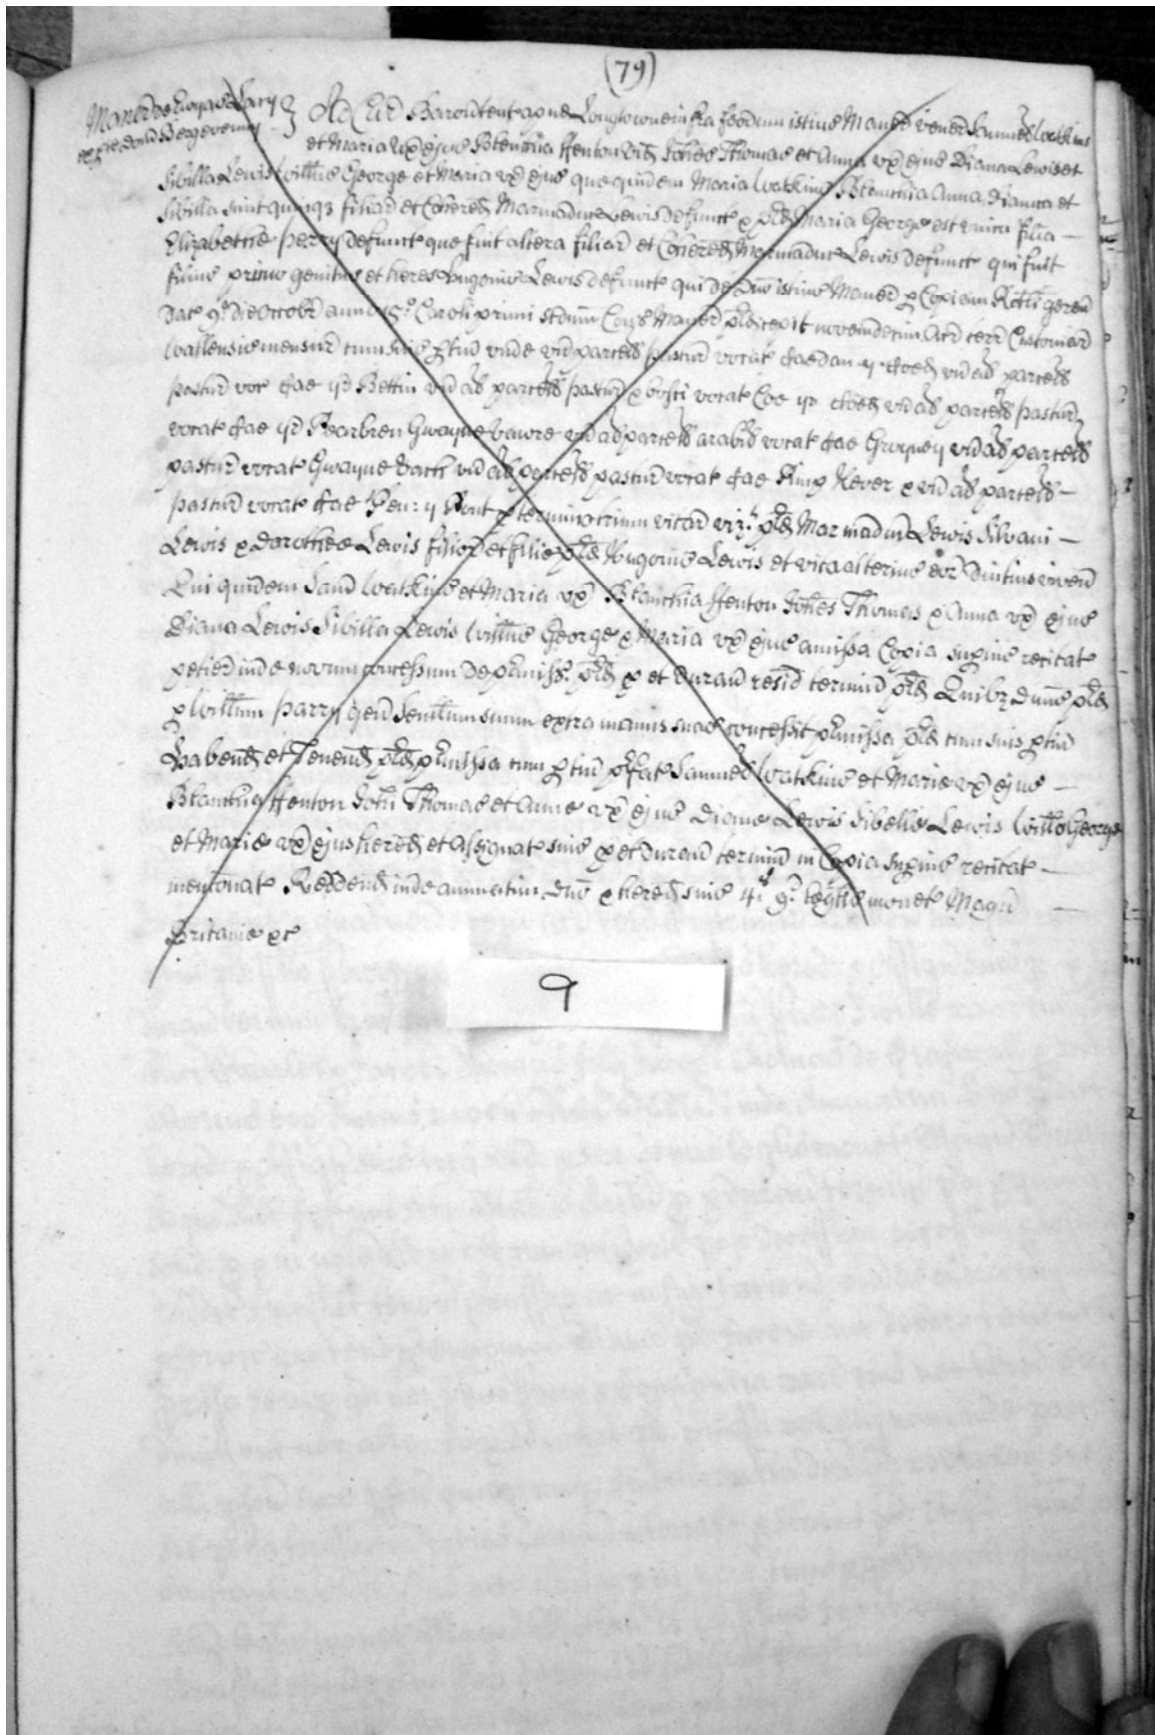 (79)
Manerd de Ewyas Lacy
ex pte dom Bergevenny
Ad Cur Baron tent apud Longtowne infra feodum istius Manerd vener Samuel Watkins
et Maria Ux ejus Blenchia Fenton vid Johes Thomas et Anna ux ejus Diana Lewis et
Sibilla Lewis Willus George et Maria ux ejus que quidem Maria Watkins Blanchia Anna Dianna et
Sibilla sunt quinqz filiar et Cohered Marmaduce Lewis defunct & pled Maria George est unica filia —
Elizabethe Perry defunct que fuit altera filiar et Cohered Marmaduce Lewis defunct qui fuit
filius primo genitus et heres Hugonis Lewis defunct qui de Dno istius Manerd p Copiam Rotli geren
dat 9o die Octobr anno 15o Caroli primi scdum Cons Manerd pled cepit novemdecim Acr terr Customar
Wallensis mensur cum suis ptin unde un parcell pastur vocat Cae dan y Coed un al parcell
pastur voc Cae yr Bettin un al parcell pastur & bosci vocat Coe yr Coed un al parcell pastur
vocat Cae yr Bearbren Gwayne vawre un al parcell arabil vocat Cae Groyney un al parcell
pastur vocat Gwayne vach un al parcell pastur vocat Cae King Kever & un al parcell —
pastur vocat Cae Pen: y Pont p termino trium vitar vizt pled Marmaduci Lewis Silvani —
Lewis & Dorothee Lewis filior et filie pled Hugonis Lewis et vita alterius eor diutius viven
Qui quidem Saml Watkins et Maria ux Blanchia Fenton Johes Thomas & Anna ux ejus
Diana Lewis Sibilla Lewis Willus George & Maria ux ejus amissa Copia superius recitat
petier inde novum concessum de pmiss pled p et duran resid termin pled Quibz Dnus pled
p Willum Parry gen Senllum suum extra manus suas concessit pmissa pled cum suis ptin
Habend et Tenend pled pmissa cum ptin pfat Samuel Watkins et Marie ux ejus —
Blanchia Fenton Johi Thomas et Anne ux ejus Diane Lewis Sibelle Lewis Willo George
et Marie ux ejus hered et Assignat suis p et duran termin in Copia superius recitat —
mentionat Reddend inde annuatim Dno & hered suis 4s 9d legalis monet Magn —
Britanie &c
9